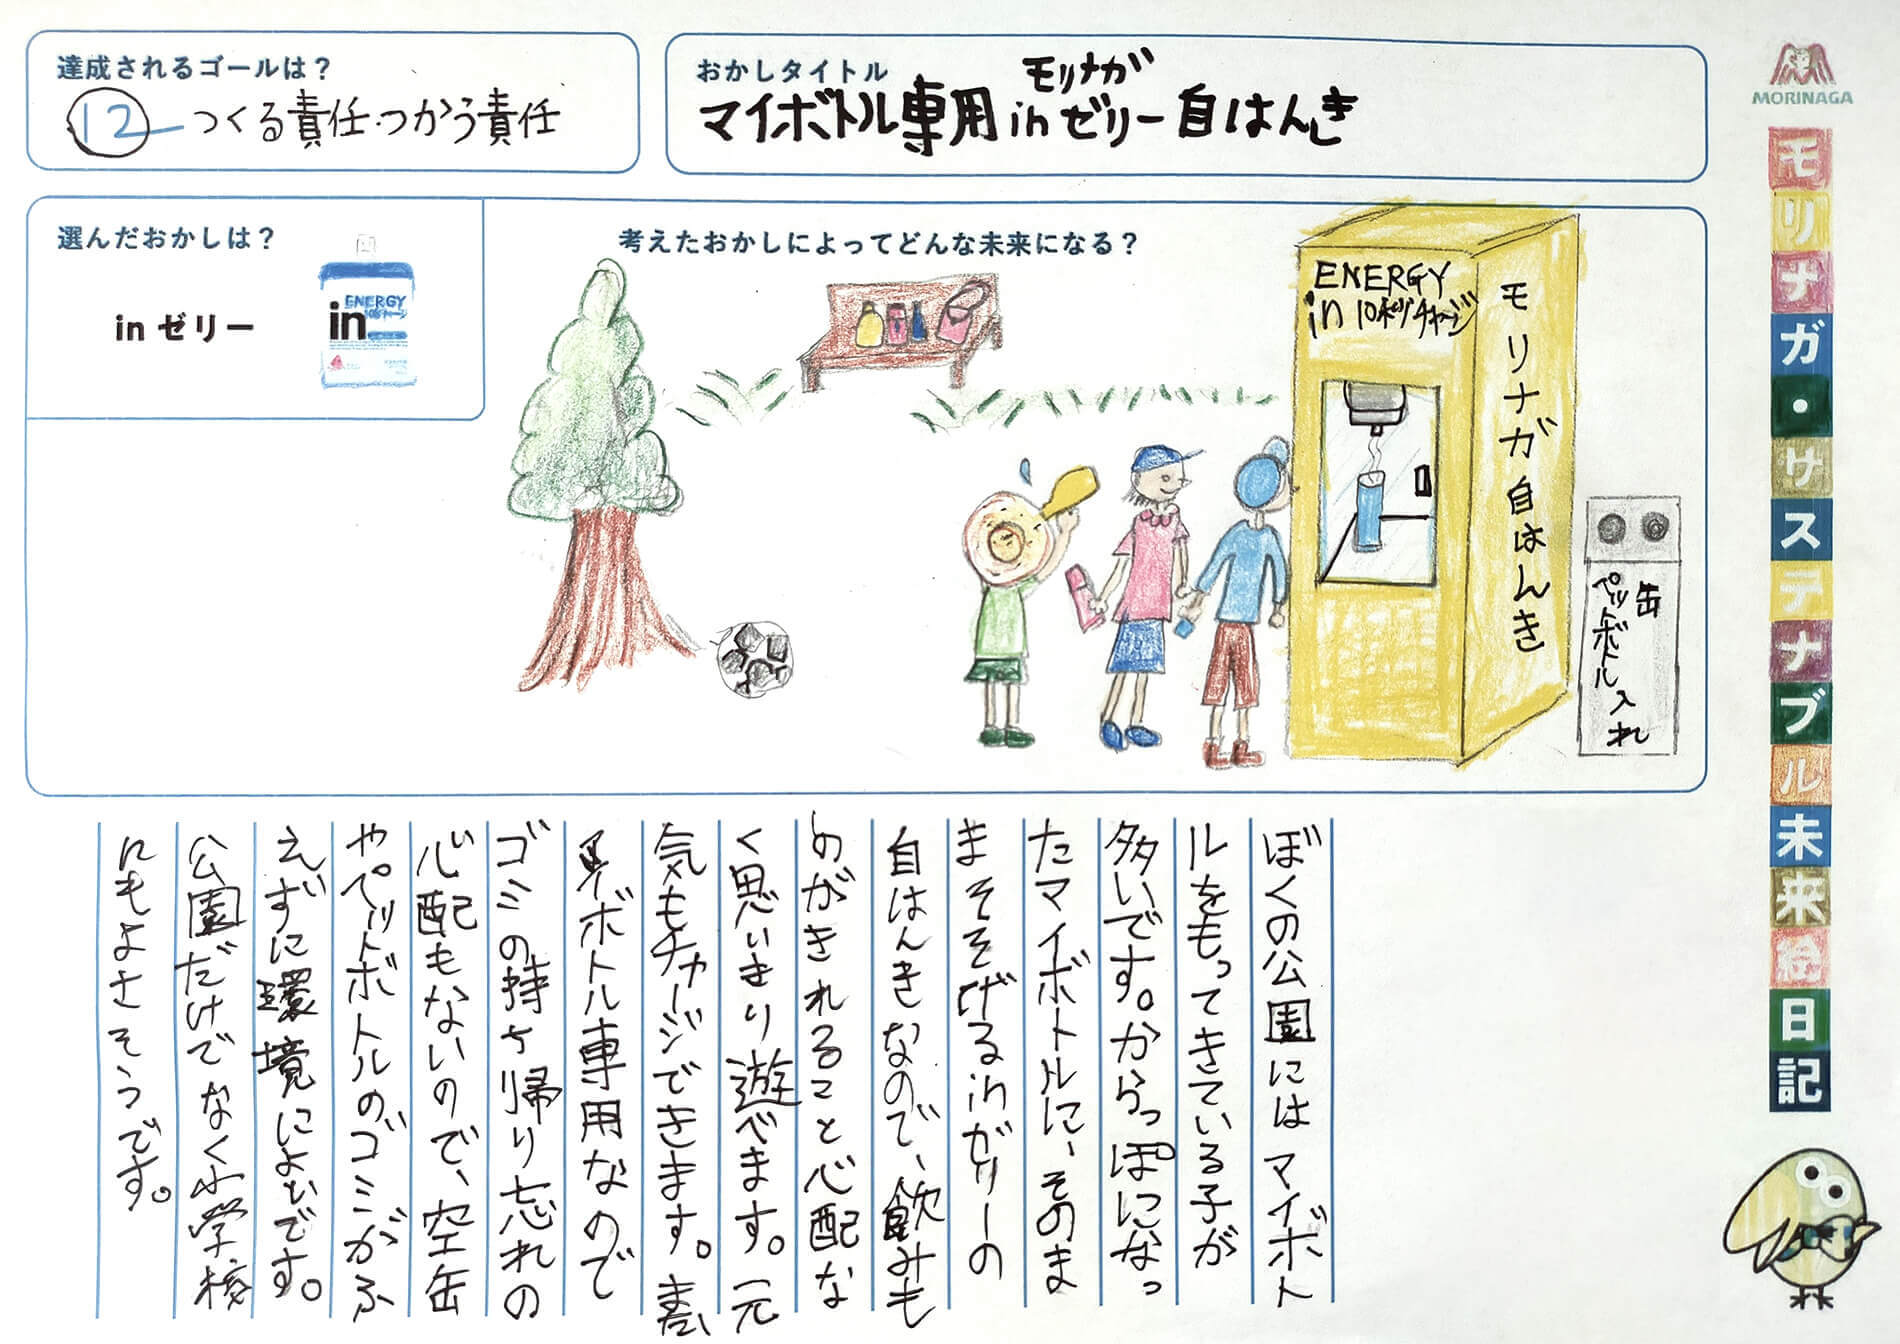 達成されるゴールは？
12 つくる責任・つかう責任
おかしタイトル
モリナガ
マイボトル専用inゼリー自はんき
MORINAGA
モリナガ・サステナブル未来絵日記
選んだおかしは？
in ゼリー
ENERGY
in
考えたおかしによってどんな未来になる？
ENERGY
in 10秒チャージ
モリナガ自はんき
缶
ペットボトル入れ
ぼくの公園にはマイボト
ルをもってきている子が
多いです。からっぽになっ
たマイボトルに、そのま
まそそげるinゼリーの
自はんきなので、飲みも
のがきれること心配な
く思いきり遊べます。元
気もチャージできます。
ボトル専用なので
ゴミの持ち帰り忘れの
心配もないので、空缶
やペットボトルのゴミがふ
えずに環境によいです。
公園だけでなく小学校
にもよさそうです。